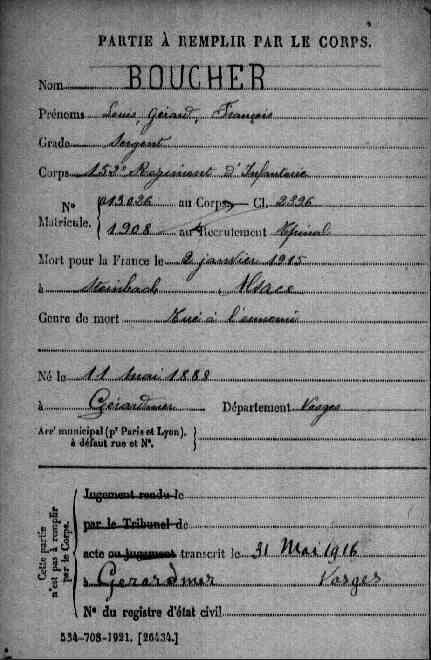 PARTIE À REMPLIR PAR LE CORPS.
Nom BOUCHER
Prénoms Louis, Gérard, François
Grade Sergent
Corps 152e Regiment d'Infanterie
No Matricule. 013026 au Corps. — Cl. 2326
1908 au Recrutement Epinal
Mort pour la France le 2 janvier 1915
à Steinbach, Alsace
Genre de mort Tué à l'ennemi
Né le 11 mai 1888
à Gérardmer Département Vosges
Arrt municipal (pr Paris et Lyon),
à défaut rue et No.
Cette partie
n'est pas à remplir
par le Corps.
Jugement rendu le
par le Tribunal de
acte ou jugement transcrit le 31 Mai 1916
à Gerardmer Vosges
No du registre d'état civil
534-708-1921. [26434.]